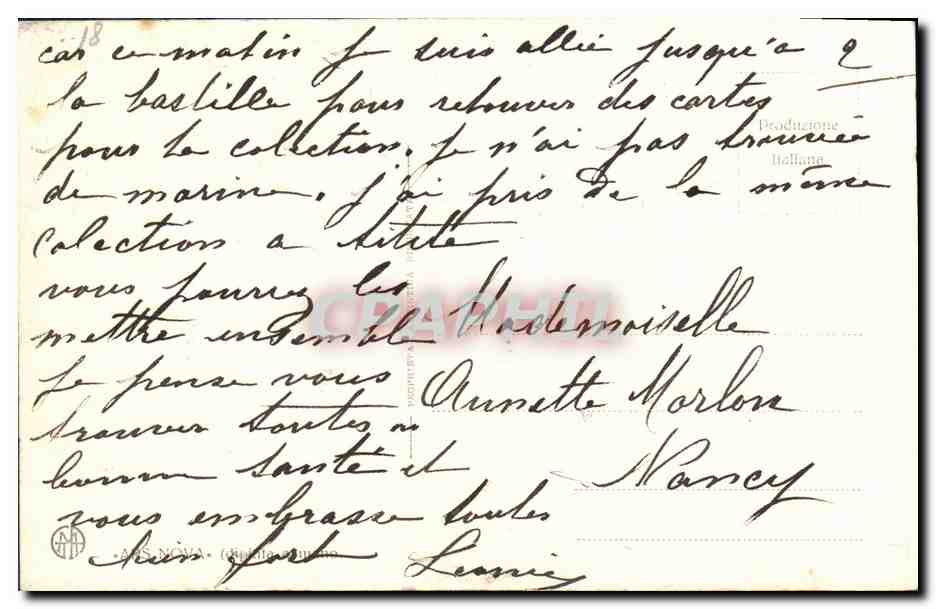 18
car ce matin je suis allée jusqu'a 2
la bastille pour retouver des cartes
pour ta colection. je n'ai pas trouvée
Produzione
Italiana
de marine. j'ai pris de la même
colection a
vous pourrez les
mettre ensemble
Mademoiselle
je pense vous
Annette Morlon
trouver toutes en
bonne santé et
Nancy
vous embrasse toutes
bien fort Leonie
CPAPHIL
PROPRIETA ARTISTICA RISERVATA
«ARS NOVA» (dipinta a mano